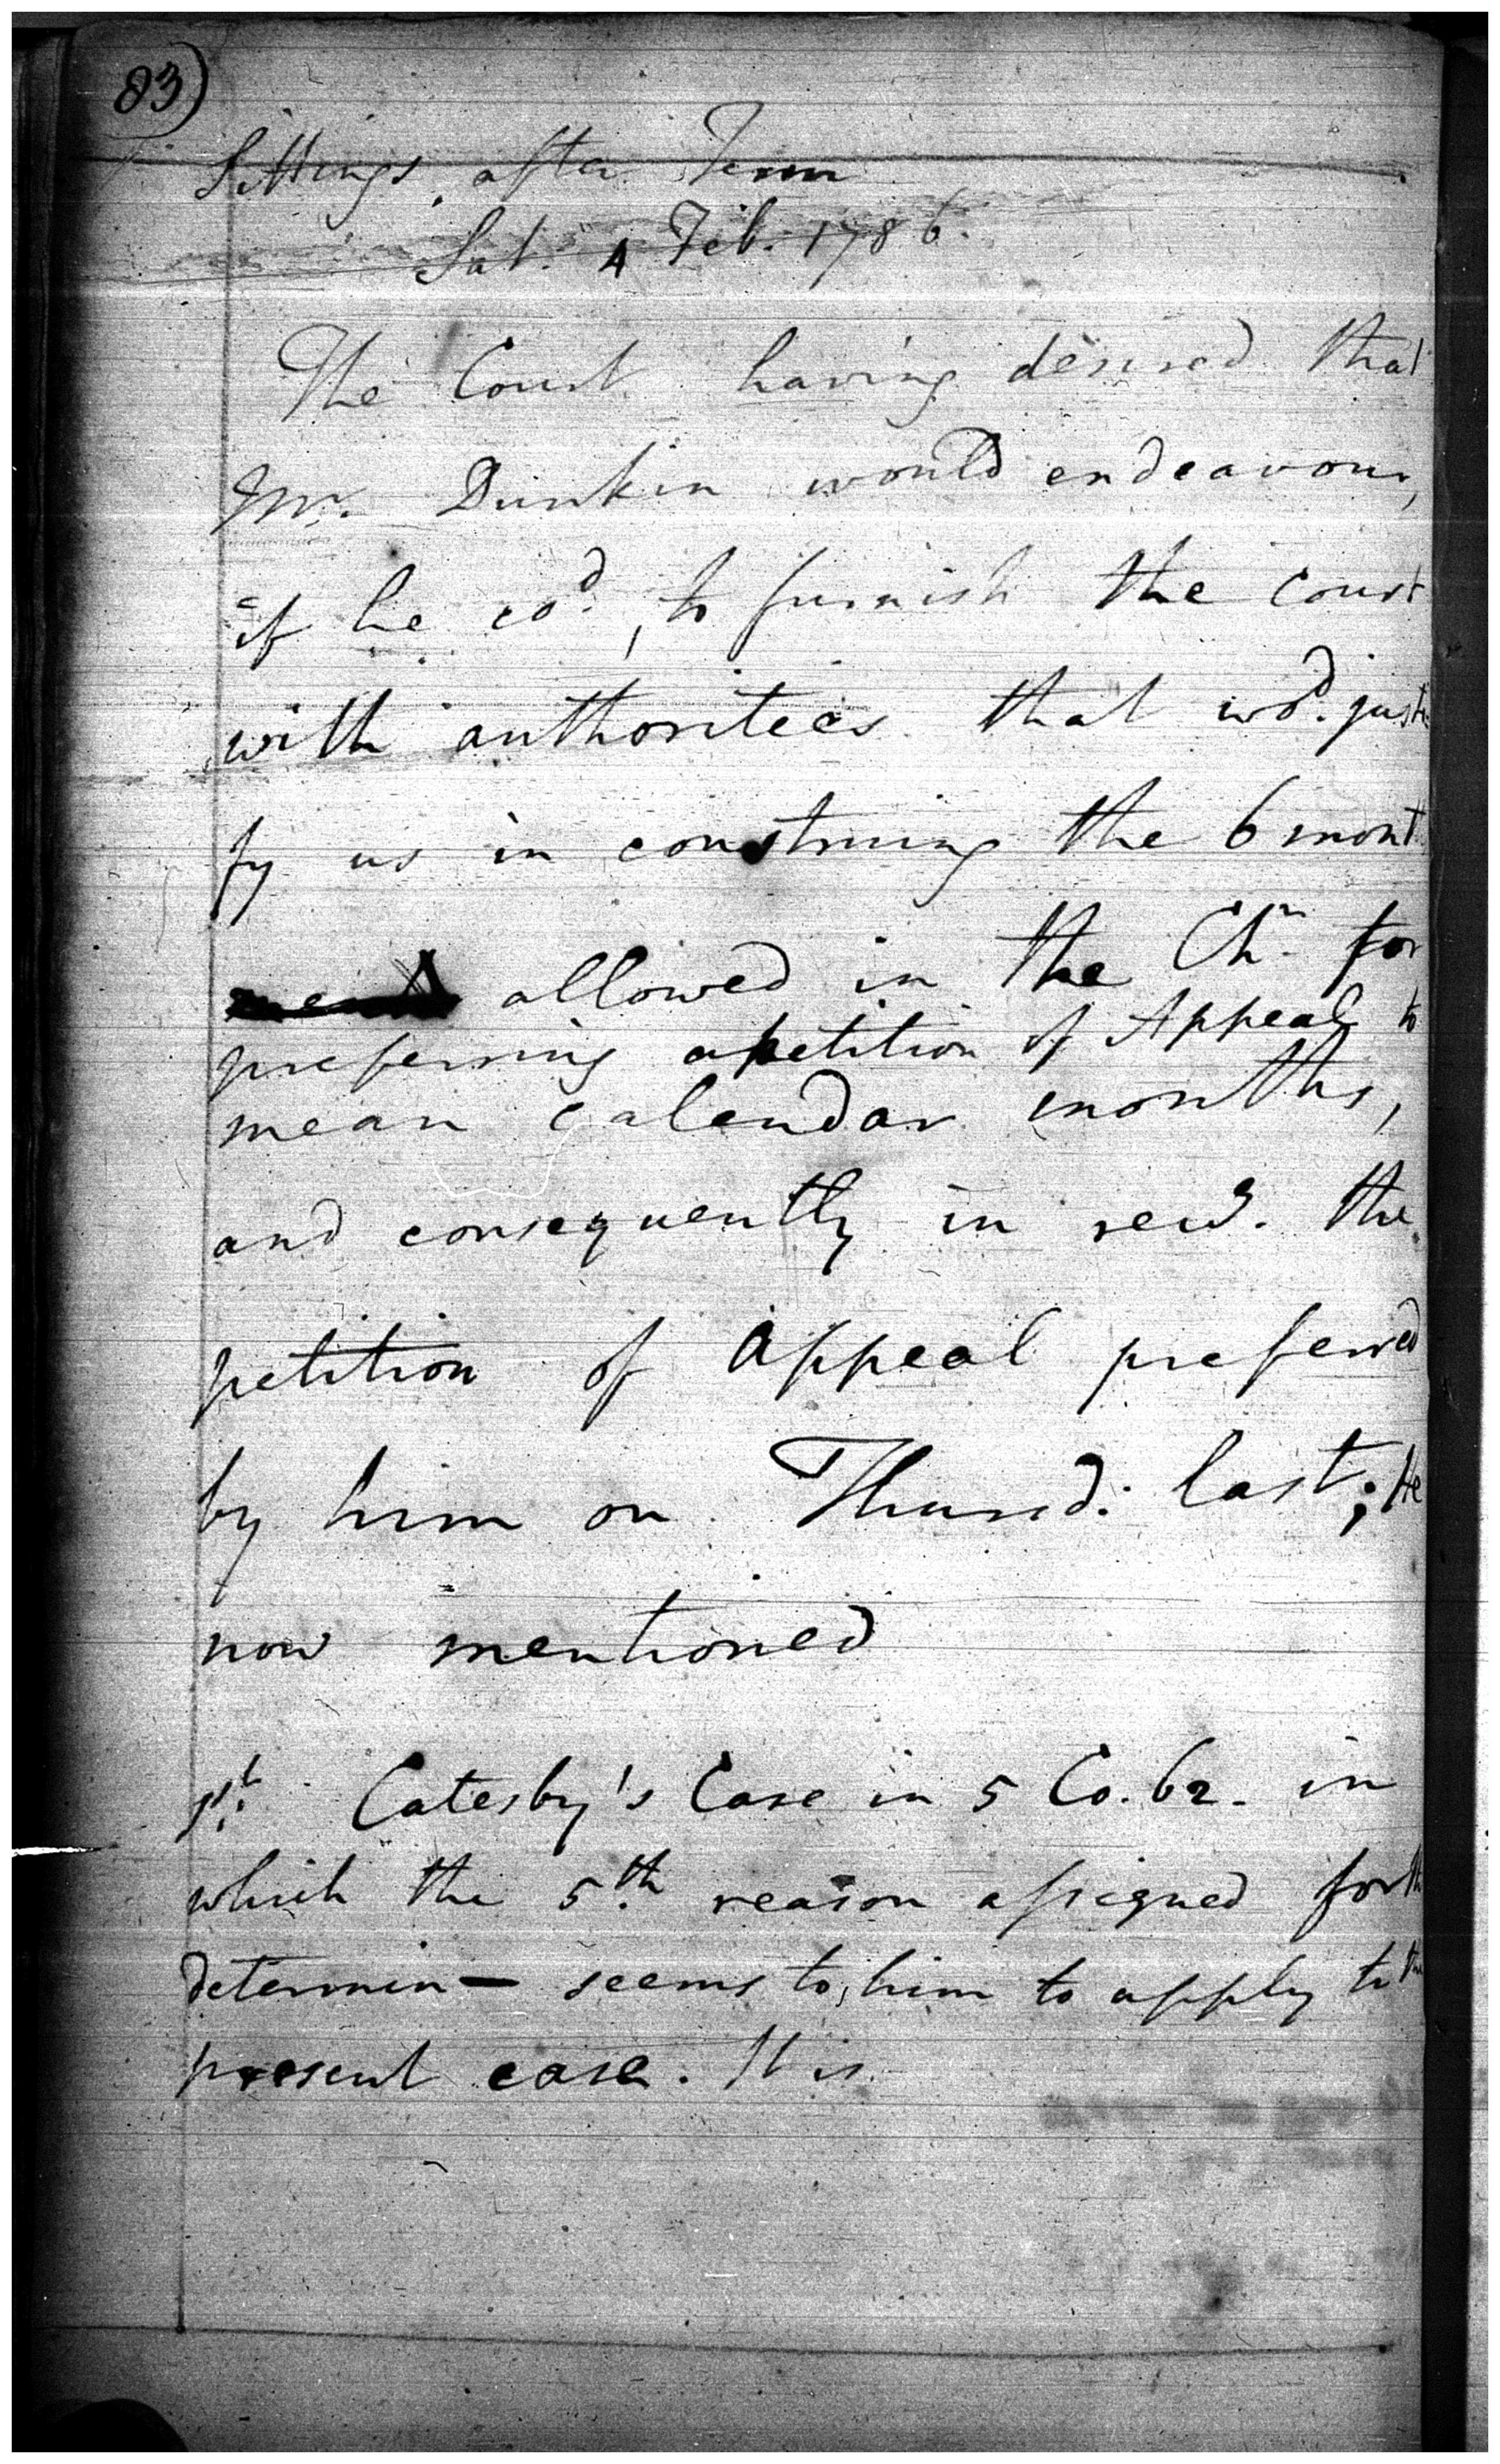 83)
Sittings after Term
Sat. 4 Feb. 1786.
The Court having desired that
Mr. Dunkin would endeavour,
if he cod., to furnish the court
with authorities that wod. justi-
fy us in construing the 6 month
allowed in the Chr. for
preferring a petition of Appeal to
mean calendar months,
and consequently in recg. the
petition of appeal preferred
by him on Thursd: last; He
now mentioned
1st. Catesby's Case in 5 Co. 62. in
which the 5th. reason assigned for the
determin— seems to him to apply to the
present case. It is